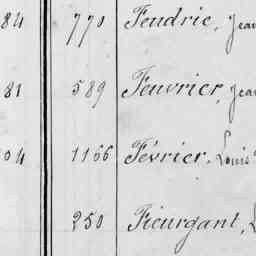 84 770 Feudric, Jean
81 589 Feuvrier, Jean
04 1166 Février, Louis
250 Fieurgant, L